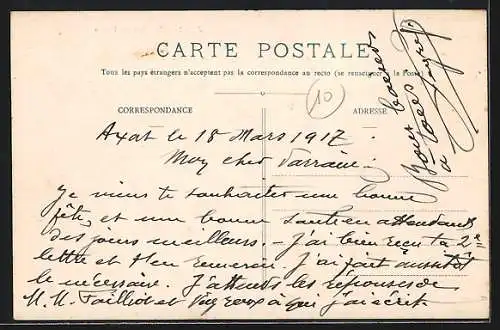 CARTE POSTALE
Tous les pays étrangers n'acceptent pas la correspondance au recto (se renseigner à la Poste)
10
CORRESPONDANCE
ADRESSE
Axat le 18 Mars 1917
Mon cher Parrain.
Je viens te souhaiter une bonne
fête, et une bonne Santé en attendant
des jours meilleurs. - J'ai bien reçu ta 2e
lettre et t'en remercie. J'ai fait aussitôt
le nécessaire. J'attends les réponses de
M. M. et à qui j'ai écrit.
Bons baisers
à